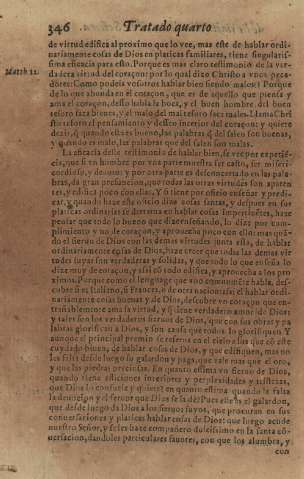 346 Tratado quarto
de virtud edifica al proximo que lo vee, mas este de hablar ordi-
nariamente cosas de Dios en platicas familiares, tiene singularis-
sima eficacia para esto. Porque es mas claro testimonio de la ver-
Matth 12.
dadera virtud del coraçon: por lo qual dize Christo a vnos prece-
dores: Como podeis vosotros hablar bien siendo malos? Porque
de lo que abunda en el coraçon, que es de aquello que piensa y
ama el coraçon, desso habla la boca, y el buen hombre del buen
tesoro saca bienes, y el malo del mal tesoro saca males. Llama Chri
sto tesoro al pensamiento y desseo interior del coraçon: y quiere
dezir, q̃ quando este es bueno, las palabras q̃ del salen son buenas,
y quando es malo, las palabras que del salen son malas.
La eficacia deste testimonio de hablar bien, se vee por experiē-
cia, que si vn hombre por vna parte muestra ser casto, ser miseri-
cordioso, y deuoto: y por otra parte es desconcertado en las pala-
bras, da gran presuncion, que todas las otras virtudes son aparen
tes, y edifica poco con ellas. Y si tiene por oficio enseñar y predi-
car, y quando haze este oficio dize cosas santas, y despues en sus
platicas ordinarias se derrama en hablar cosas impertinētes, haze
pensar que todo lo bueno que dixo enseñando, lo dixo por cum-
plimiento y no de coraçon, y aprouecha poco con ello: mas quā-
do el sieruo de Dios con las demas virtudes junta esta, de hablar
ordinariamente cosas de Dios, haze creer que todas las demas vir
tudes suyas son verdaderas y solidas, y que todo lo que enseña lo
dize muy de coraçon, y assi cō todo edifica, y aprouecha a los pro
ximos. Porque como el lenguage que vno comunmēte habla, des-
cubre si es Italiano, si Frances, o de otra nacion: assi el hablar ordi-
nariamente cosas buenas y de Dios, descubre vn coraçon que en-
trañablemente ama la virtud, y tiene verdadero amor de Dios:
y tales son los verdaderos sieruos de Dios, que con sus obras y pa
labras glorifican a Dios, y son causa que todos lo glorifiquen. Y
aunque el principal premio se reserua en el cielo a los que cō este
cuydado buenas, de hablar cosas de Dios, y que edifiquen, mas no
les falta desde luego su galardon y paga, que vale mas que el oro,
y que las piedras preciosas. En quanto estima vn sieruo de Dios,
quando tiene afliciones interiores y perplexidades y tristezas,
que Dios lo consuele y quiete? en quanto estima quando le falta
la deuocion y el feruor que Dios se la dè? Pues este es el galardon,
que desde luego da Dios a los sieruos suyos, que procuran en sus
conuersaciones y platicas hablar cosas de Dios: que luego acude
nuestro Señor, y se les haze compañero dulcissimo en la santa cō-
uersacion, dandoles particulares fauores, con que los alumbra, y
con